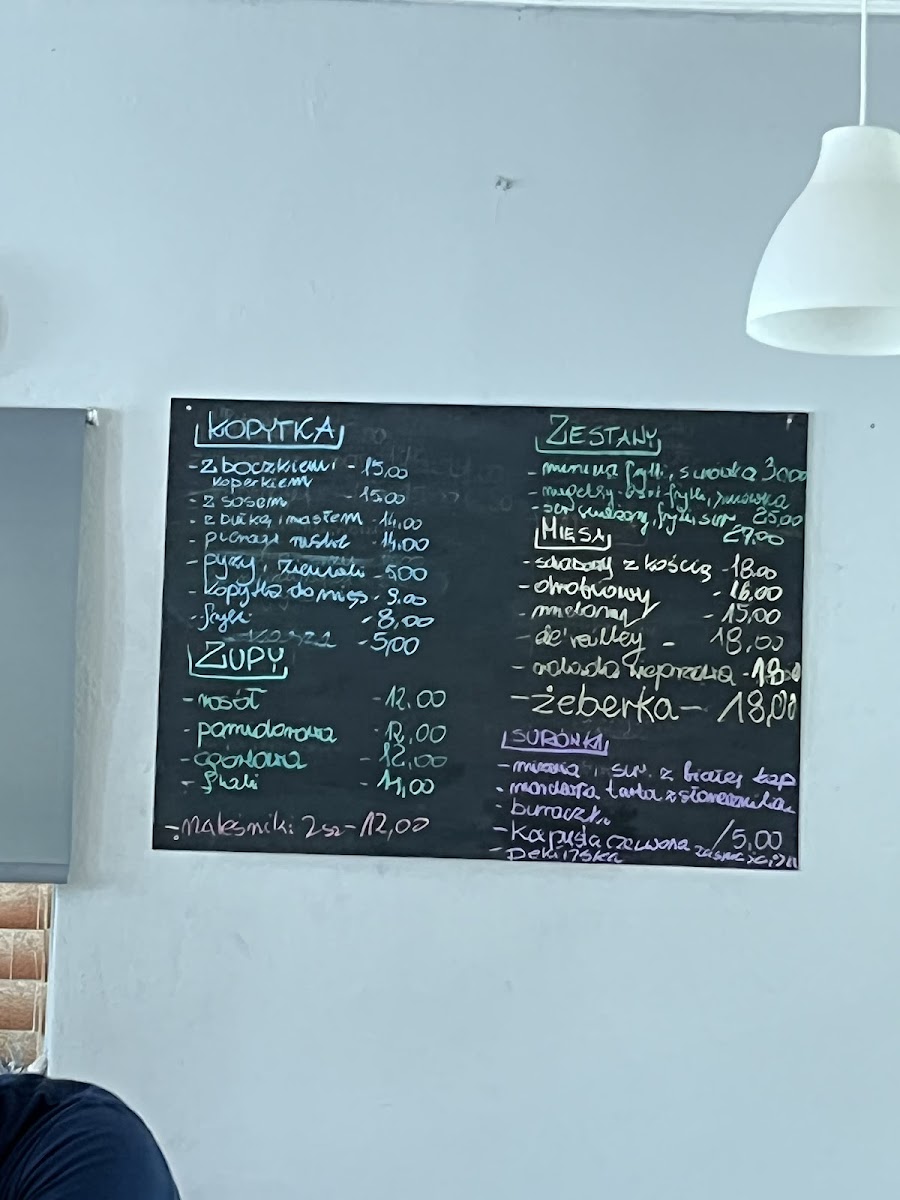 KOPYTKA
- z boczkiem i - 15,00
koperkiem
- z sosem - 15,00
- z bułką i masłem - 14,00
- pierogi ruskie - 14,00
- pyzy, ziemniaki - 5,00
- kopytka do mięs - 9,00
- frytki - 8,00
- kasza - 5,00
ZUPY
- rosół - 12,00
- pomidorowa - 12,00
- ogórkowa - 12,00
- flaki - 14,00
- naleśniki 2sz - 12,00
ZESTAWY
frytki, surówka 30,00
- frytki, surówka
- ser smażony, frytki, sur 25,00
27,00
MIĘSA
- schabowy z kością - 18,00
- drobiowy - 16,00
- mielony - 15,00
- de'vailley - 18,00
- rolada wieprzowa - 18,00
- żeberka - 18,00
SURÓWKI
- mizeria, sur. z białej kap
- marchewka tarta z słonecznikiem
- buraczki
- kapusta czerwona /5,00
- pekińska zasmażana